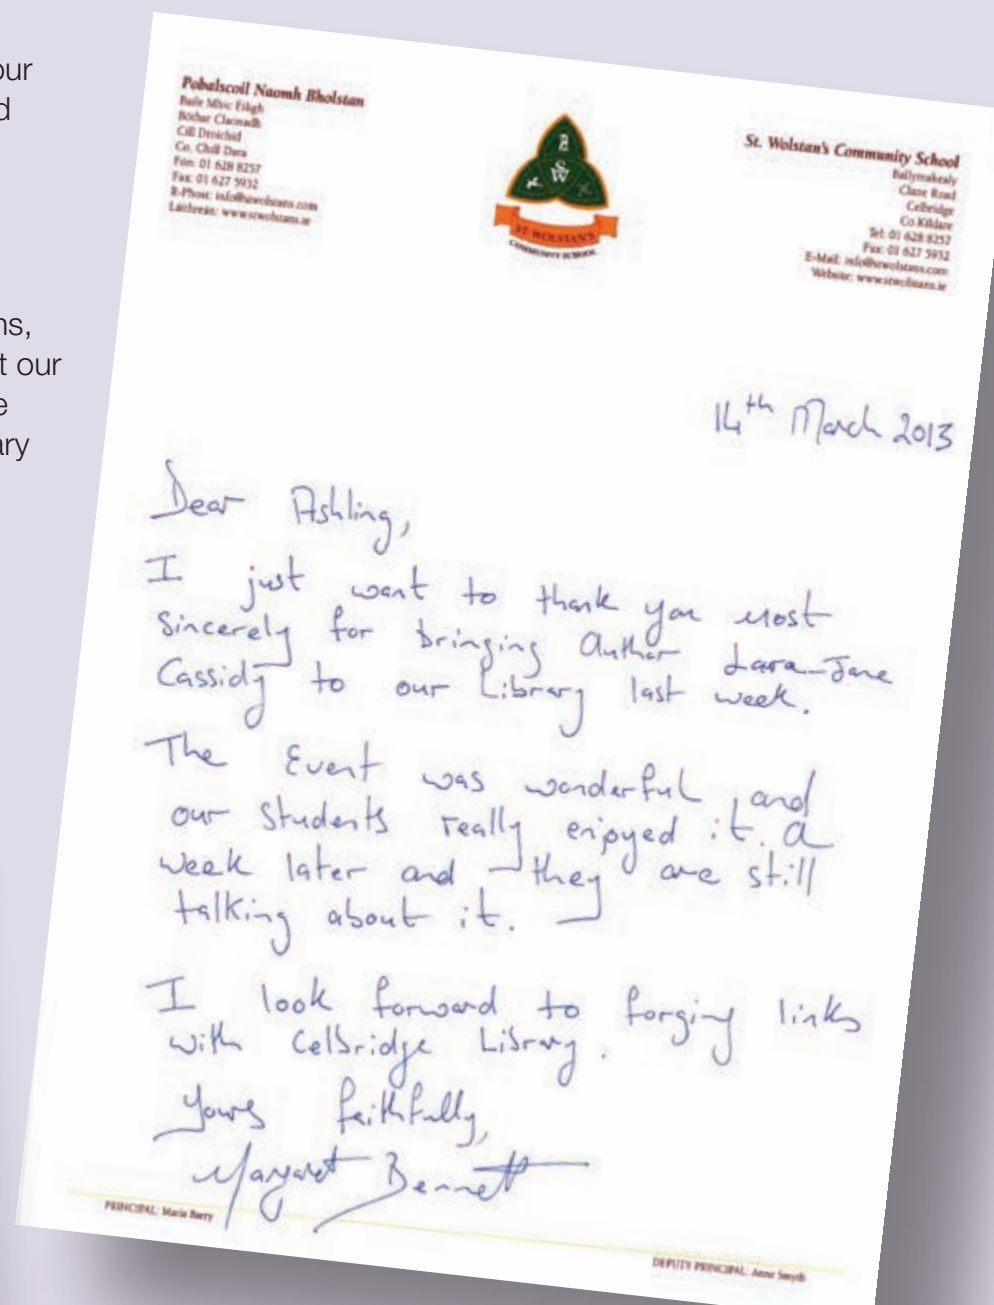 our
d
ns,
t our
e
ary
Pobalscoil Naomh Bholstan
Baile Mhic Éiligh
Bóthar Claonadh
Cill Droichid
Co. Chill Dara
Fón: 01 628 8257
Fax: 01 627 5932
R-Phost: info@stwolstans.com
Laithreán: www.stwolstans.ie
SW
ST WOLSTAN'S
COMMUNITY SCHOOL
St. Wolstan's Community School
Ballymakealy
Clane Road
Celbridge
Co Kildare
Tel: 01 628 8257
Fax: 01 627 5932
E-Mail: info@stwolstans.com
Website: www.stwolstans.ie
14th March 2013
Dear Ashling,
I just want to thank you most
Sincerely for bringing Author Lara-Jane
Cassidy to our Library last week.
The Event was wonderful, and
our students really enjoyed it. a
week later and they are still
talking about it.
I look forward to forging links
with Celbridge Library.
Yours faithfully,
Margaret Bennett
PRINCIPAL: Maria Barry
DEPUTY PRINCIPAL: Anne Smyth